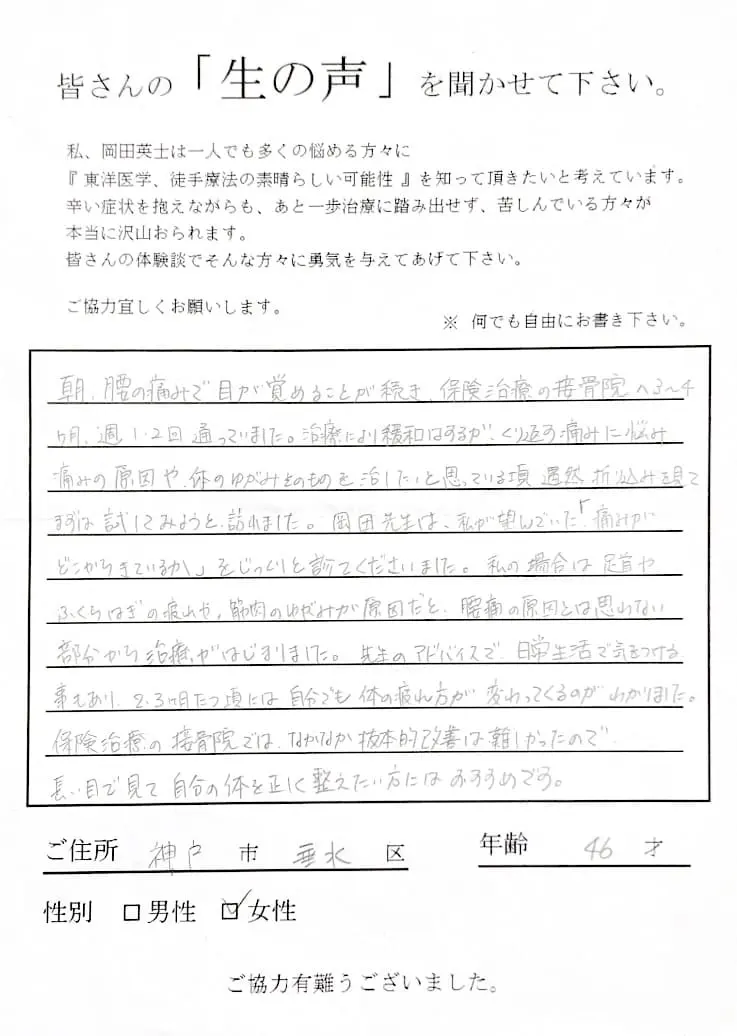 皆さんの「生の声」を聞かせて下さい。
私、岡田英士は一人でも多くの悩める方々に
『 東洋医学、徒手療法の素晴らしい可能性 』を知って頂きたいと考えています。
辛い症状を抱えながらも、あと一歩治療に踏み出せず、苦しんでいる方々が
本当に沢山おられます。
皆さんの体験談でそんな方々に勇気を与えてあげて下さい。
ご協力宜しくお願いします。
※ 何でも自由にお書き下さい。
朝、腰の痛みで目が覚めることが続き、保険治療の接骨院へ3〜4
ヶ月、週1・2回通っていました。治療により緩和はするが、くり返す痛みに悩み
痛みの原因や、体のゆがみそのものを治したいと思っている頃、偶然折り込みを見て
まずは試してみようと、訪れました。岡田先生は、私が望んでいた「痛みが
どこからきているか」をじっくりと診てくださいました。私の場合は足首や
ふくらはぎの疲れや、筋肉のゆがみが原因だと、腰痛の原因とは思わない
部分から治療がはじまりました。先生のアドバイスで、日常生活で気をつける
事もあり、2・3ヶ月たつ頃には自分でも体の疲れ方が変わってくるのがわかりました。
保険治療の接骨院では、なかなか抜本的改善は難しかったので、
長い目で見て自分の体を正しく整えたい方にはおすすめです。
ご住所 神戸 市 垂水 区 年齢 46 才
性別 □男性 ☑女性
ご協力有難うございました。